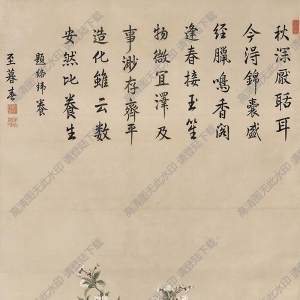 秋深厭聒耳
今得錦囊盛
經臘鳴香閣
逢春接玉笙
物微宜澤及
事渺存齊平
造化雖云數
安然比養生
題絡緯養
至暮春